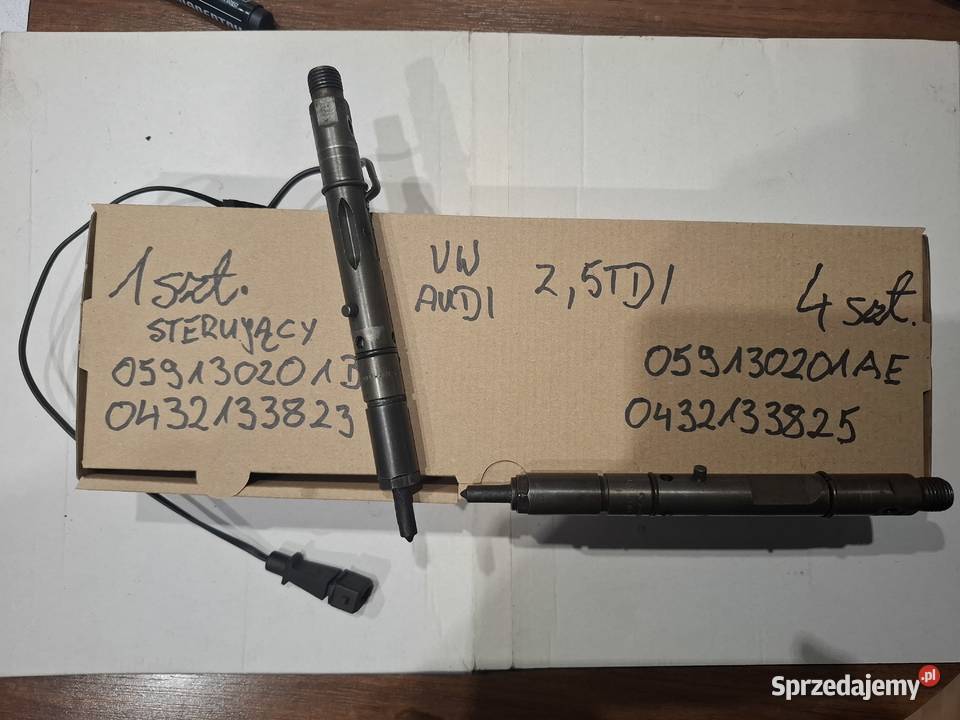 1 szt.
STERUJĄCY
059130201
0432133823
VW
AUDI
2,5TDI
4 szt.
059130201AE
0432133825
Sprzedajemy.pl